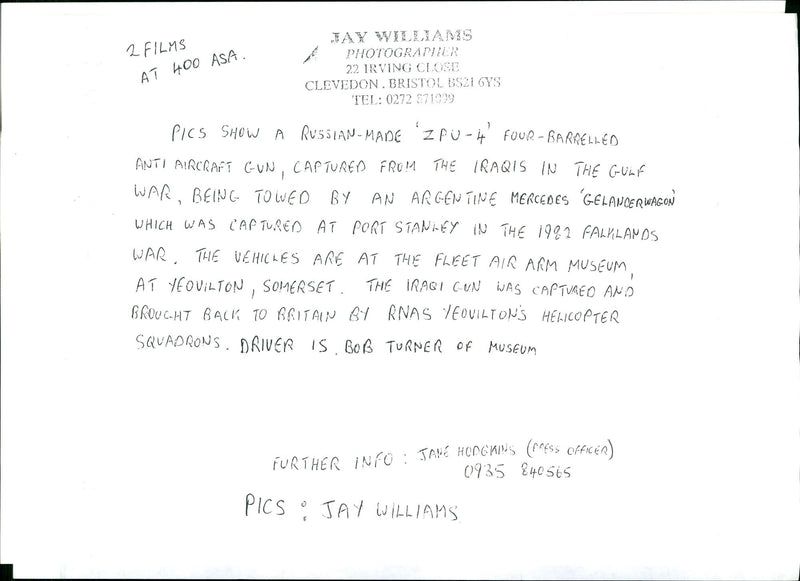 2 FILMS
AT 400 ASA.
JAY WILLIAMS
PHOTOGRAPHER
22 IRVING CLOSE
CLEVEDON. BRISTOL BS21 6YS
TEL: 0272 871999
PICS SHOW A RUSSIAN-MADE 'ZPU-4' FOUR-BARRELLED
ANTI AIRCRAFT GUN, CAPTURED FROM THE IRAQIS IN THE GULF
WAR, BEING TOWED BY AN ARGENTINE MERCEDES 'GELANDERWAGON'
WHICH WAS CAPTURED AT PORT STANLEY IN THE 1982 FALKLANDS
WAR. THE VEHICLES ARE AT THE FLEET AIR ARM MUSEUM,
AT YEOVILTON, SOMERSET. THE IRAQI GUN WAS CAPTURED AND
BROUGHT BACK TO BRITAIN BY RNAS YEOVILTON'S HELICOPTER
SQUADRONS. DRIVER IS BOB TURNER OF MUSEUM
FURTHER INFO: JANE HODGKINS (PRESS OFFICER)
0935 840565
PICS: JAY WILLIAMS